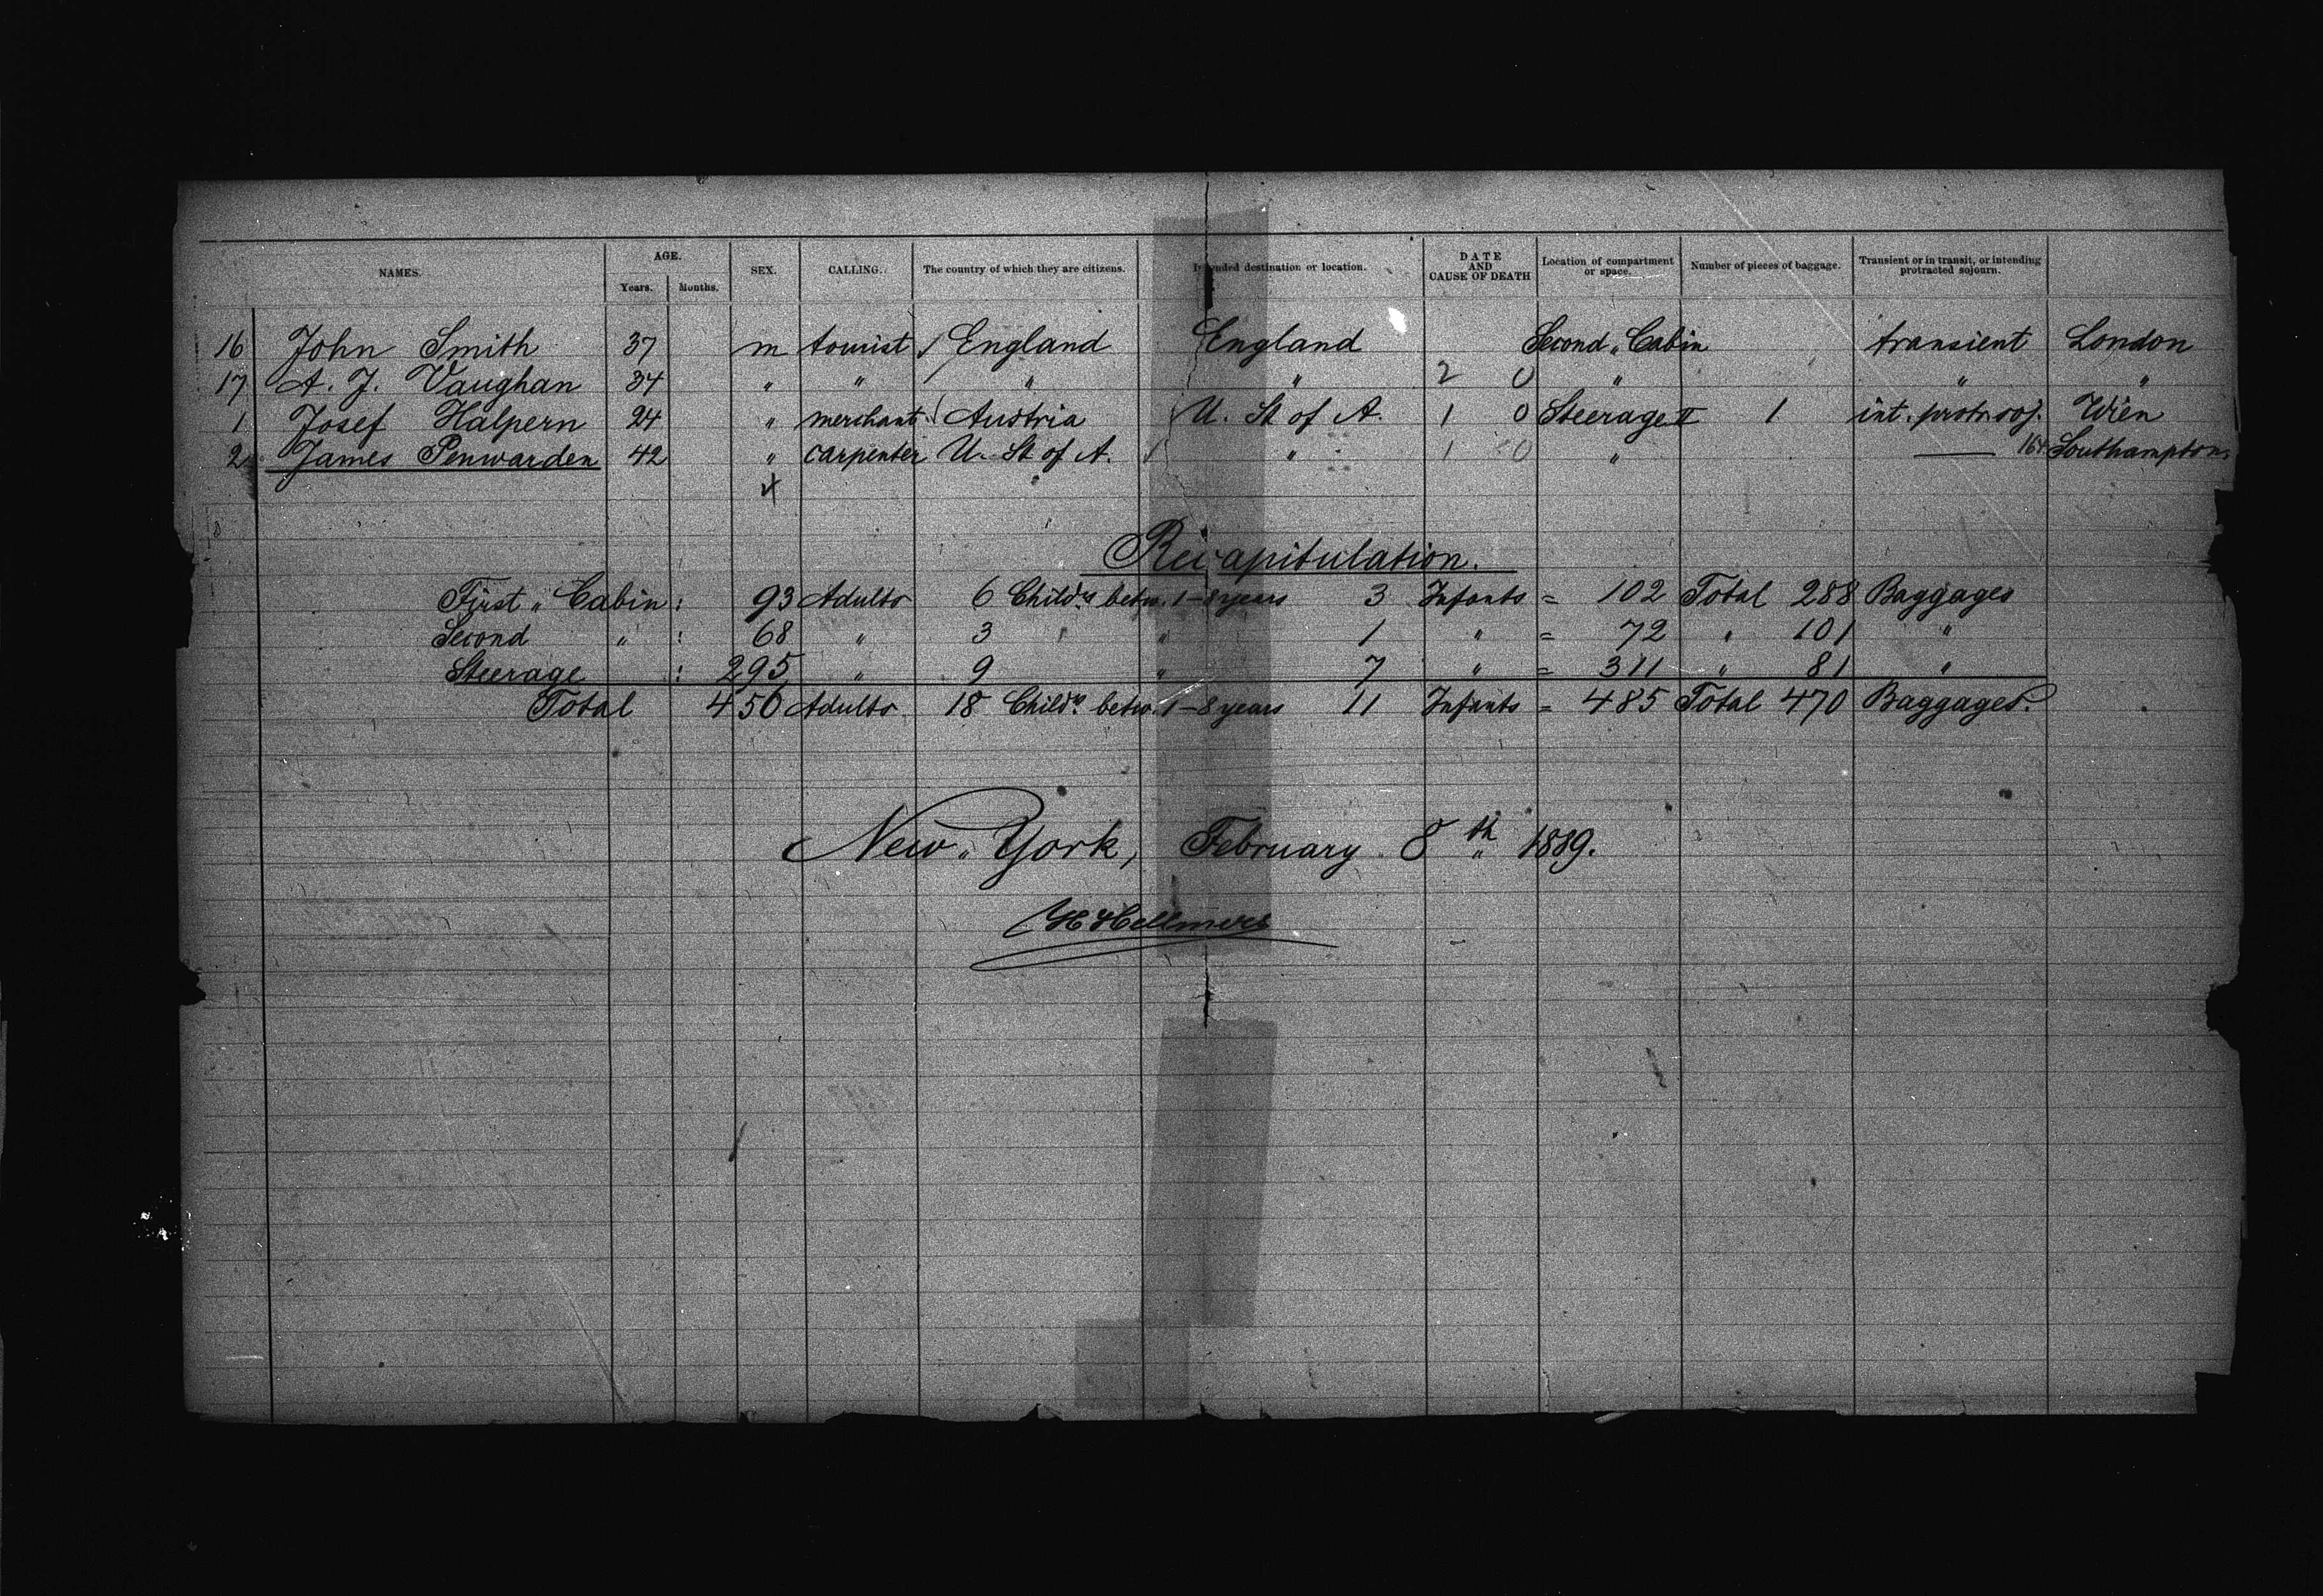 NAMES. AGE. Years. Months. SEX. CALLING. The country of which they are citizens. Intended destination or location. DATE AND CAUSE OF DEATH Location of compartment or space. Number of pieces of baggage. Transient or in transit, or intending protracted sojourn.
16 John Smith 37 m tourist England England Second „ Cabin transient London
17 A. J. Vaughan 34 " " " " 2 0 " " "
1 Josef Halpern 24 " merchant Austria U. St. of A. 1 0 Steerage II 1 int. protr. soj. Wien
2 James Penwarden 42 " carpenter U. St. of A. " 1 0 " — 164 Southampton
4
Recapitulation.
First „ Cabin : 93 Adults 6 Childrs betw. 1-8 years 3 Infants = 102 Total 288 Baggages
Second " : 68 " 3 " " 1 " = 72 " 101 "
Steerage : 295 " 9 " 7 " = 311 " 81 "
Total 456 Adults 18 Childrn betw. 1-8 years 11 Infants = 485 Total 470 Baggages.
New „ York, February 8th 1889.
H Hellmers